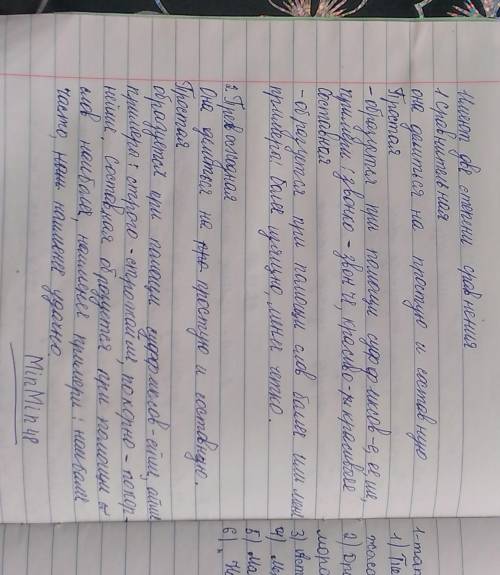 Имеют две степени сравнения
1 Сравнительная
она делиться на простую и составную
Простая
- образуется при помощи суффиксов -е, ее, ше,
примеры: звонко - звонче, красиво - красивее
Составная
- образуется при помощи слов более или мене
примеры: более изящно, менее четко.
2. Превосходная
Она делиться на простую и составную.
Простая
образуется при помощи суффиксов -ейш, айше
примеры: строго - строжайше, покорно - покор-
нейше, составная образуется при помощи
слов наиболее, наименее примеры: наиболее
часто, наименее удачно
MinMin48
1-так
1)
2)
3)
4)
5) Ма
6)